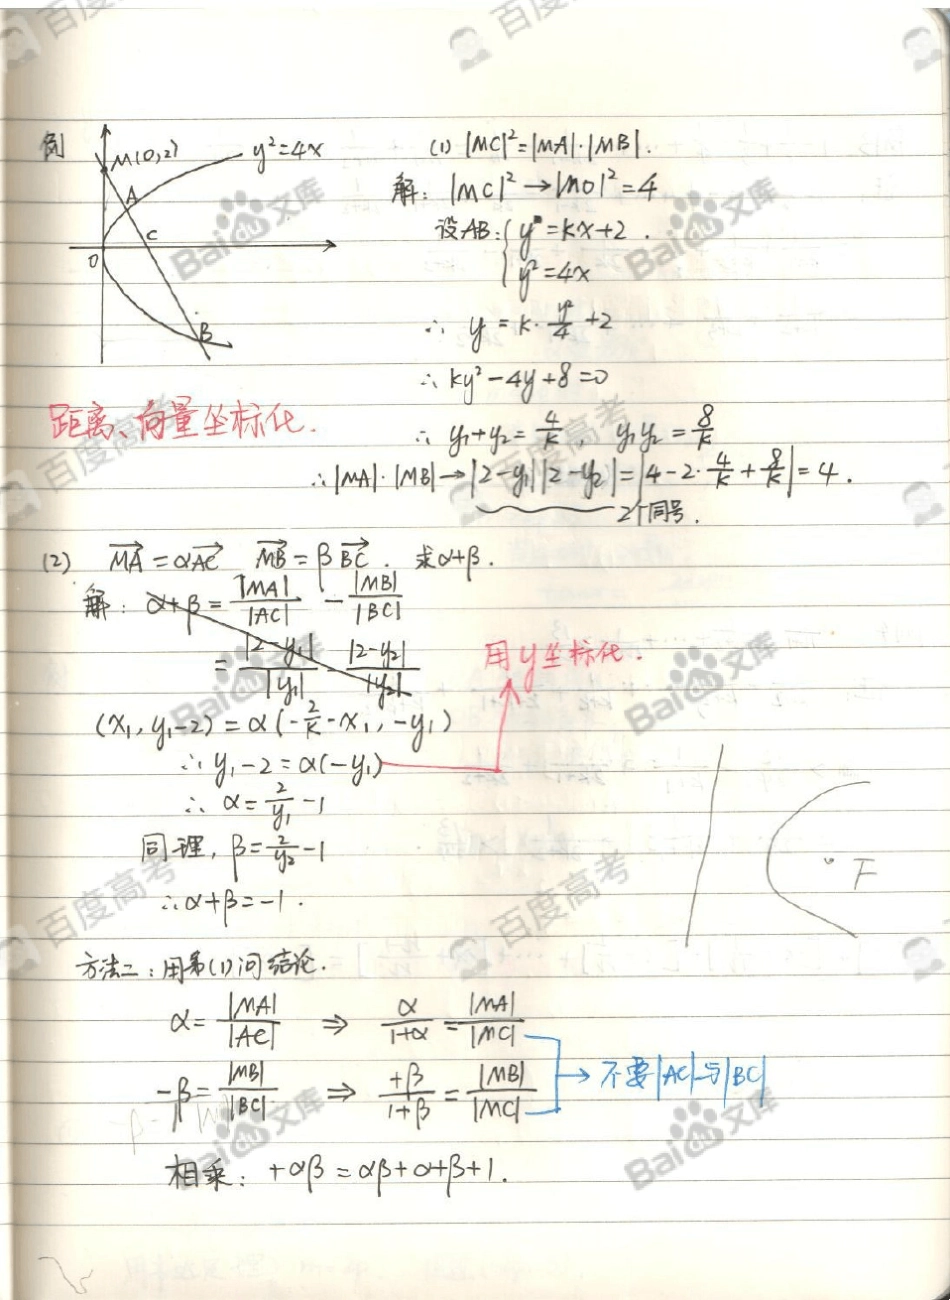 例
M(0,2)
y²=4x
A
C
O
B
(1) |MC|²=|MA|·|MB|.
解: |MC|²→|MO|²=4
设AB: { y=kx+2.
y²=4x
∴ y=k·y²/4+2
∴ ky²-4y+8=0
∴ y₁+y₂=4/k, y₁y₂=8/k
∴|MA|·|MB|→|2-y₁||2-y₂|=|4-2·4/k+8/k|=4.
2个同号.
距离、向量坐标化.
(2) MA=αAC MB=βBC. 求α+β.
解: α+β=|MA|/|AC| - |MB|/|BC|
=|2-y₁|/|y₁| - |2-y₂|/|y₂|
(x₁, y₁-2)=α(-2/k-x₁, -y₁)
∴ y₁-2=α(-y₁)
用y坐标化.
∴ α=2/y₁-1
同理, β=2/y₂-1
∴α+β=-1.
F
方法二: 用第(1)问结论.
α=|MA|/|AC| ⇒ α/(1+α)=|MA|/|MC|
-β=|MB|/|BC| ⇒ +β/(1+β)=|MB|/|MC|
→不要|AC|与|BC|
相乘: +αβ=αβ+α+β+1.
百度高考
Baidu文库